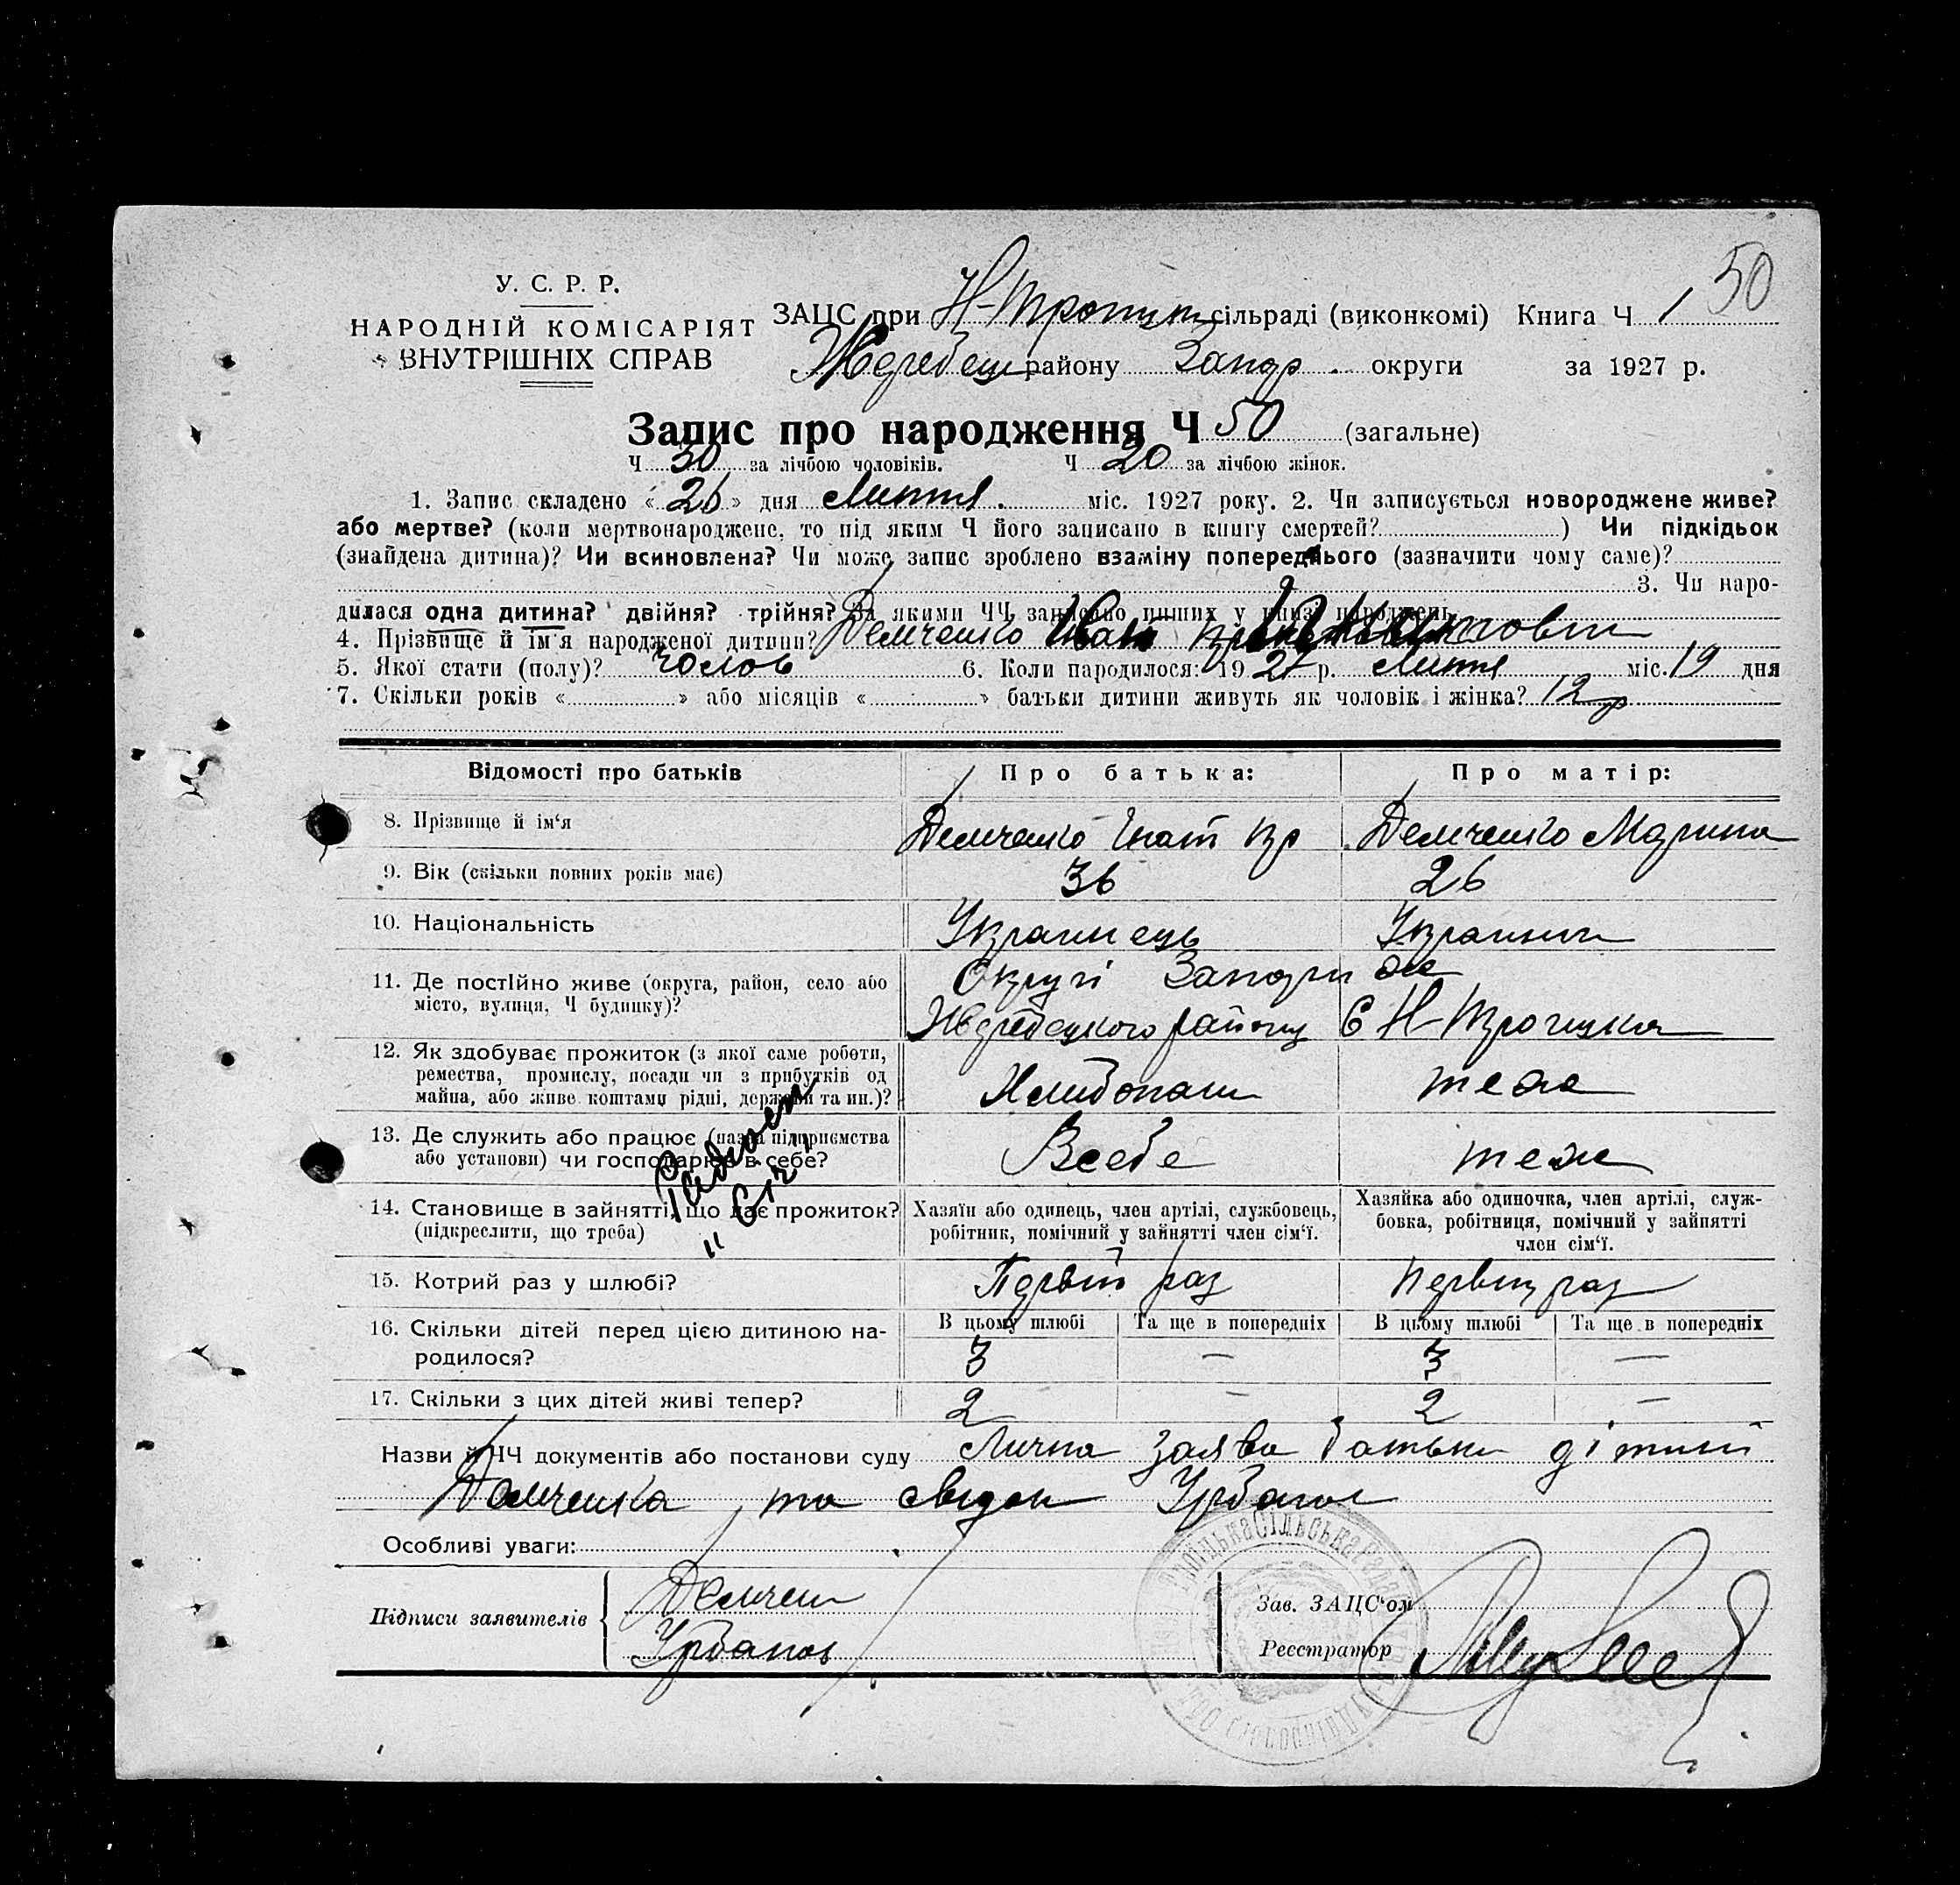 50
У. С. Р. Р.
НАРОДНІЙ КОМІСАРІЯТ
ВНУТРІШНІХ СПРАВ
ЗАЦС при Н-Троицк сільраді (виконкомі) Книга Ч 1
Жеребец району Запор. округи за 1927 р.
Запис про народження Ч 50 (загальне)
Ч 30 за лічбою чоловіків. Ч 20 за лічбою жінок.
1. Запис складено « 26 » дня Липня міс. 1927 року. 2. Чи записується новороджене живе?
або мертве? (коли мертвонароджене, то під яким Ч його записано в книгу смертей? ) Чи підкідьок
(знайдена дитина)? Чи всиновлена? Чи може запис зроблено взаміну попереднього (зазначити чому саме)?
3. Чи наро-
дилася одна дитина? двійня? трійня? За якими ЧЧ записано инших у книзі народжень
4. Прізвище й ім'я народженої дитини? Демченко Иван
5. Якої стати (полу)? чолов 6. Коли народилося: 1927 р. Липня міс. 19 дня
7. Скільки років « » або місяців « » батьки дитини живуть як чоловік і жінка? 12 р
Відомості про батьків Про батька: Про матір:
8. Прізвище й ім'я Демченко Гнат Демченко Марина
9. Вік (скільки повних років має) 36 26
10. Національність Украинець Украинка
11. Де постійно живе (округа, район, село або Округі Запориже
місто, вулиця, Ч будинку)? Жеребецкого району С Н-Троицка
12. Як здобуває прожиток (з якої саме роботи,
ремества, промислу, посади чи з прибутків од Хлибопаш теж
майна, або живе коштами рідні, держави та ин.)?
13. Де служить або працює (назва підприємства Всебе теж
або установи) чи господарює в себе?
14. Становище в зайнятті, що дає прожиток? Хазяїн або одинець, член артілі, службовець, Хазяйка або одиночка, член артілі, служ-
(підкреслити, що треба) робітник, помічний у зайнятті член сім'ї. бовка, робітниця, помічний у зайнятті
член сім'ї.
"Січ"
15. Котрий раз у шлюбі? Первий раз Первий раз
16. Скільки дітей перед цією дитиною на- В цьому шлюбі Та ще в попередніх В цьому шлюбі Та ще в попередніх
родилося? 3 — 3 —
17. Скільки з цих дітей живі тепер? 2 — 2 —
Назви й ЧЧ документів або постанови суду Лична заява батька дітини
Демченка, та свідок Урбанов
Особливі уваги:
Підписи заявителів Демчен
Урбанов
Зав. ЗАЦС'ом
Реєстратор